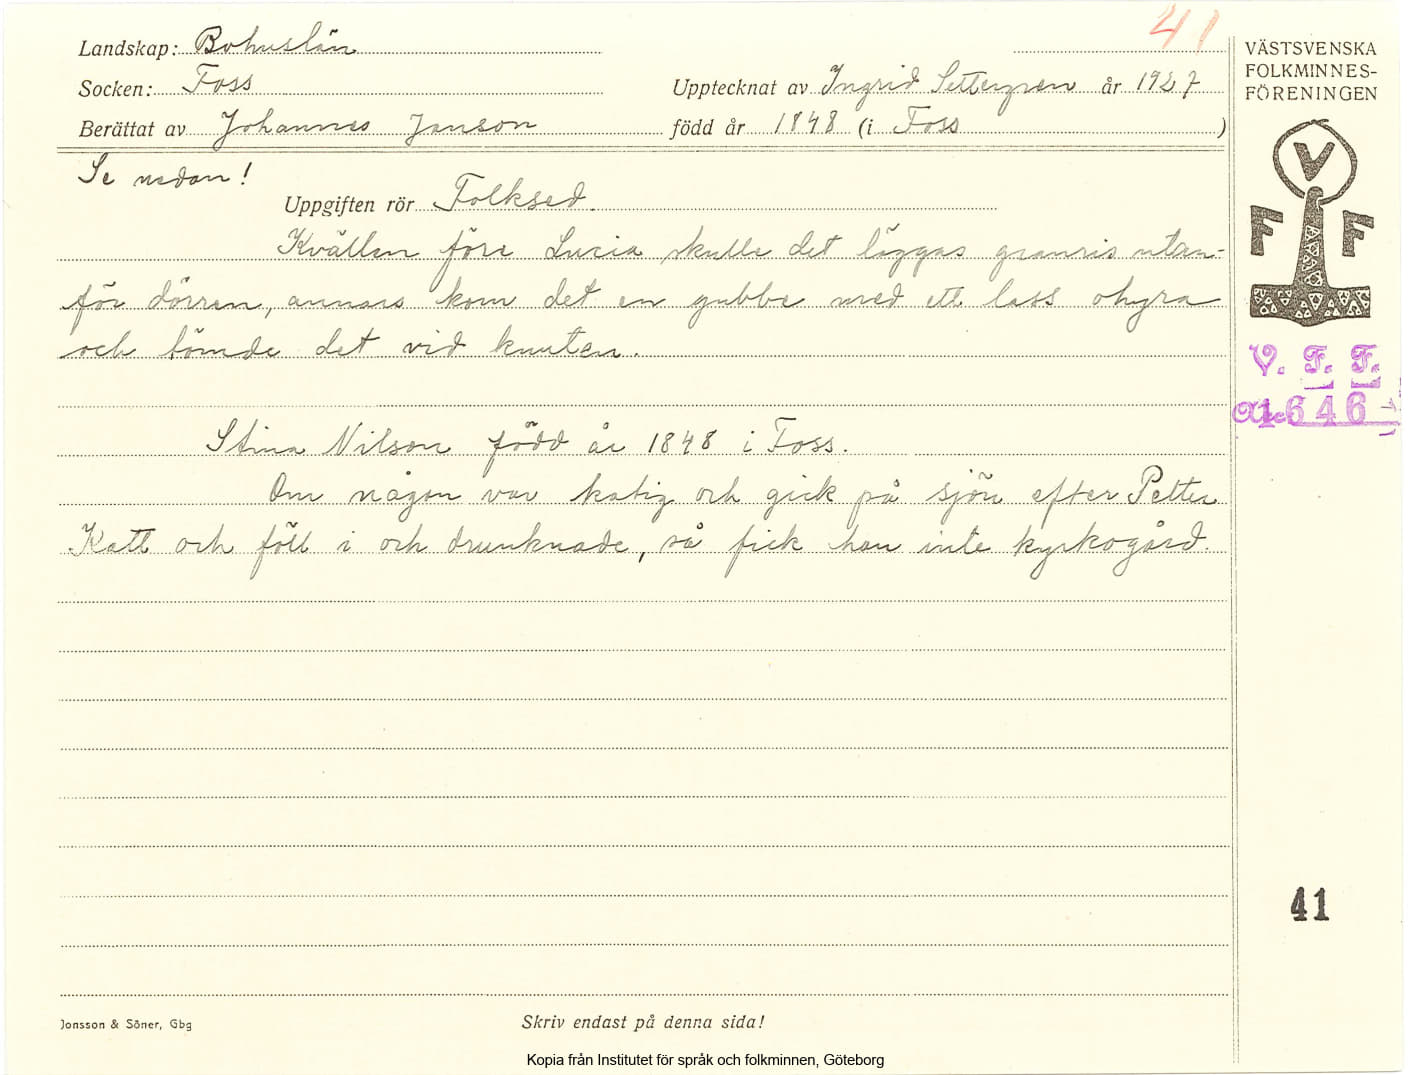 41
Landskap: Bohuslän
Socken: Foss
Upptecknat av Ingrid Settergren år 1927
Berättat av Johannes Janson född år 1848 (i Foss )
Se nedan!
Uppgiften rör Folksed.
Kvällen före Lucia skulle det läggas granris utan-
för dörren, annars kom det en gubbe med ett lass ohyra
och tömde det vid knuten.
Stina Nilson född år 1848 i Foss.
Om någon var katig och gick på sjön efter Petter
Katt och föll i och drunknade, så fick han inte kyrkogård.
VÄSTSVENSKA
FOLKMINNES-
FÖRENINGEN
V
F F
V. F. F.
1646
41
Jonsson & Söner, Gbg
Skriv endast på denna sida!
Kopia från Institutet för språk och folkminnen, Göteborg